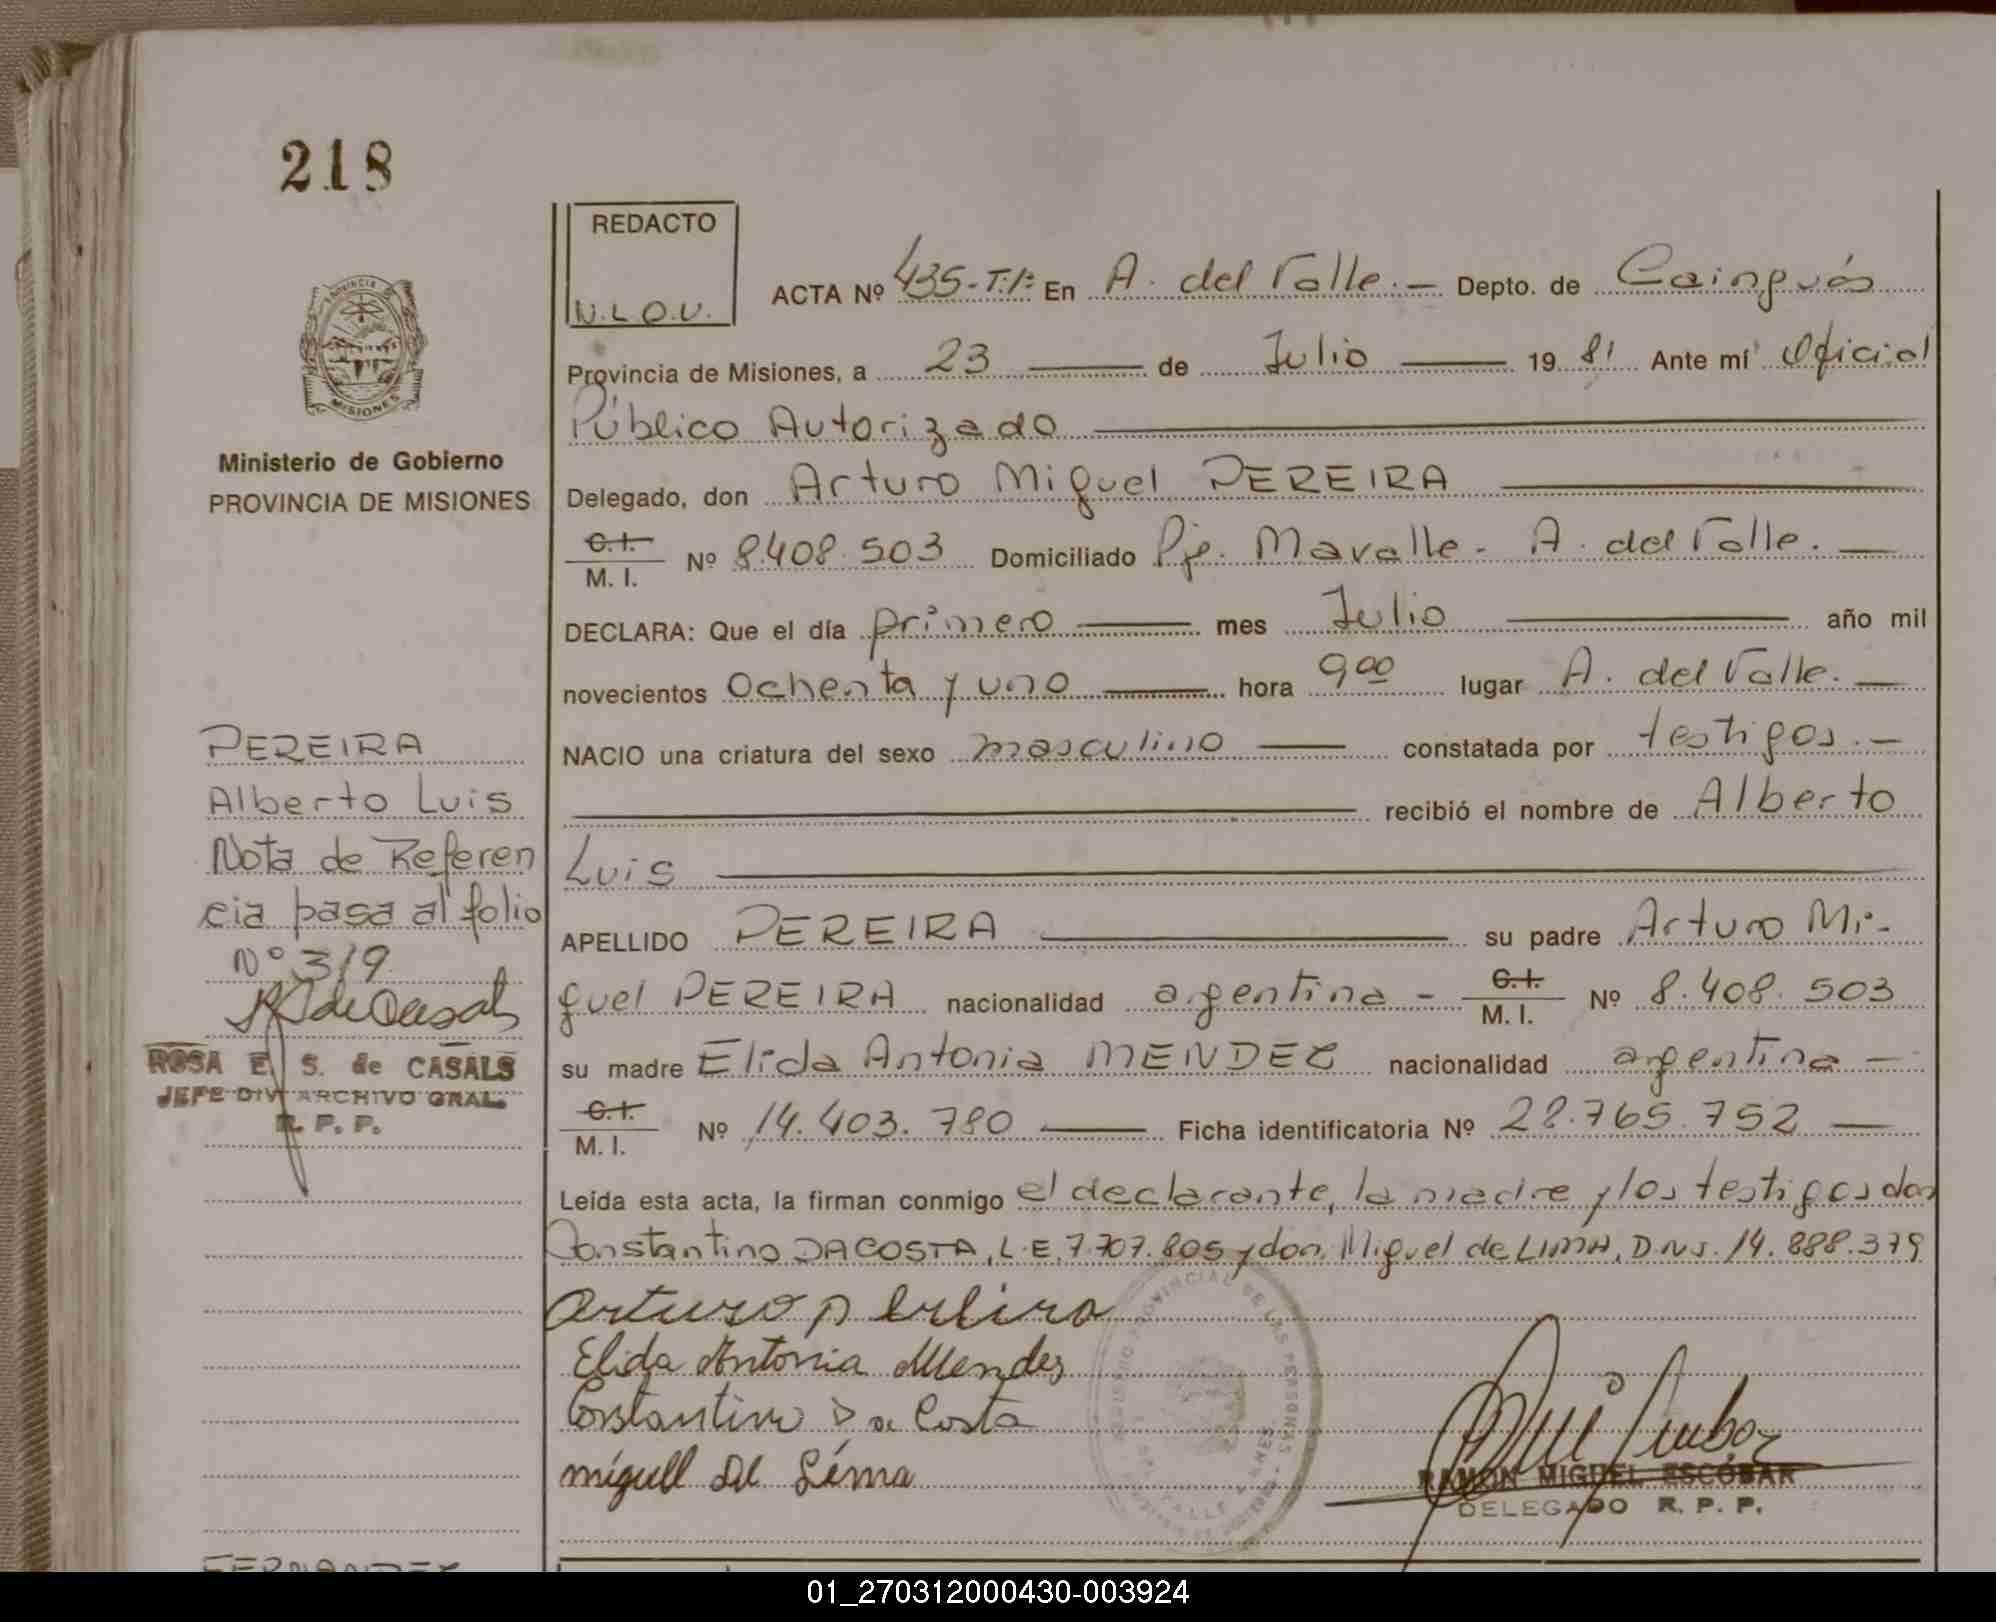 218
REDACTO
N.L.O.V.
ACTA Nº 435-T.I: En A. del Valle.- Depto. de Cainguás
Provincia de Misiones, a 23 de Julio 19 81 Ante mí Oficial
Público Autorizado
Ministerio de Gobierno
PROVINCIA DE MISIONES
Delegado, don Arturo Miguel PEREIRA
C.I. M. I. Nº 8.408.503 Domiciliado Pje. Mavalle - A. del Valle.
DECLARA: Que el día primero mes Julio año mil
novecientos ochenta y uno hora 9 00 lugar A. del Valle.
NACIO una criatura del sexo masculino constatada por testigos.-
recibió el nombre de Alberto
Luis
APELLIDO PEREIRA su padre Arturo Mi-
guel PEREIRA nacionalidad argentina - C.I. M. I. Nº 8.408.503
su madre Elida Antonia MENDEZ nacionalidad argentina -
C.I. M. I. Nº 14.403.780 Ficha identificatoria Nº 28.765.752
Leída esta acta, la firman conmigo el declarante, la madre y los testigos don
Constantino DACOSTA, L.E. 7.707.805 y don Miguel de LIMA, D.N.I. 14.888.379
PEREIRA
Alberto Luis
Nota de Referen
cia pasa al folio
Nº 319
ROSA E. S. de CASALS
JEFE DIV ARCHIVO GRAL.
R. P. P.
Arturo P ereira
Elida Antonia Mendes
Constantino Da Costa
miguel De Lima
RAMON MIGUEL ESCOBAR
DELEGADO R. P. P.
FERNANDEZ
01_270312000430-003924